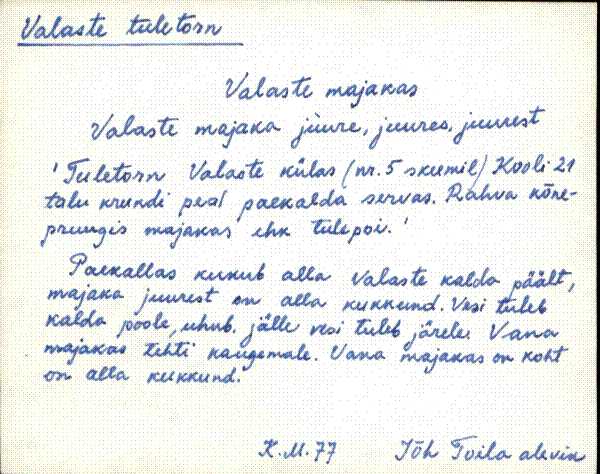 Valaste tuletorn
Valaste majakas
Valaste majaka jüure, juures, juurest
'Tuletorn Valaste külas (nr. 5 skeemil) Kooli 21
talu krundi peal paekalda servas. Rahva kõne-
pruugis majakas ehk tulepoi.'
Paekallas kukub alla Valaste kalda päält,
majaka juurest on alla kukkund. Vesi tuleb
kalda poole, uhub, jälle vesi tuleb järele. Vana
majakas tehti kaugemale. Vana majakas on koht
on alla kukkund.
K.M. 77 Jõh Toila alevik